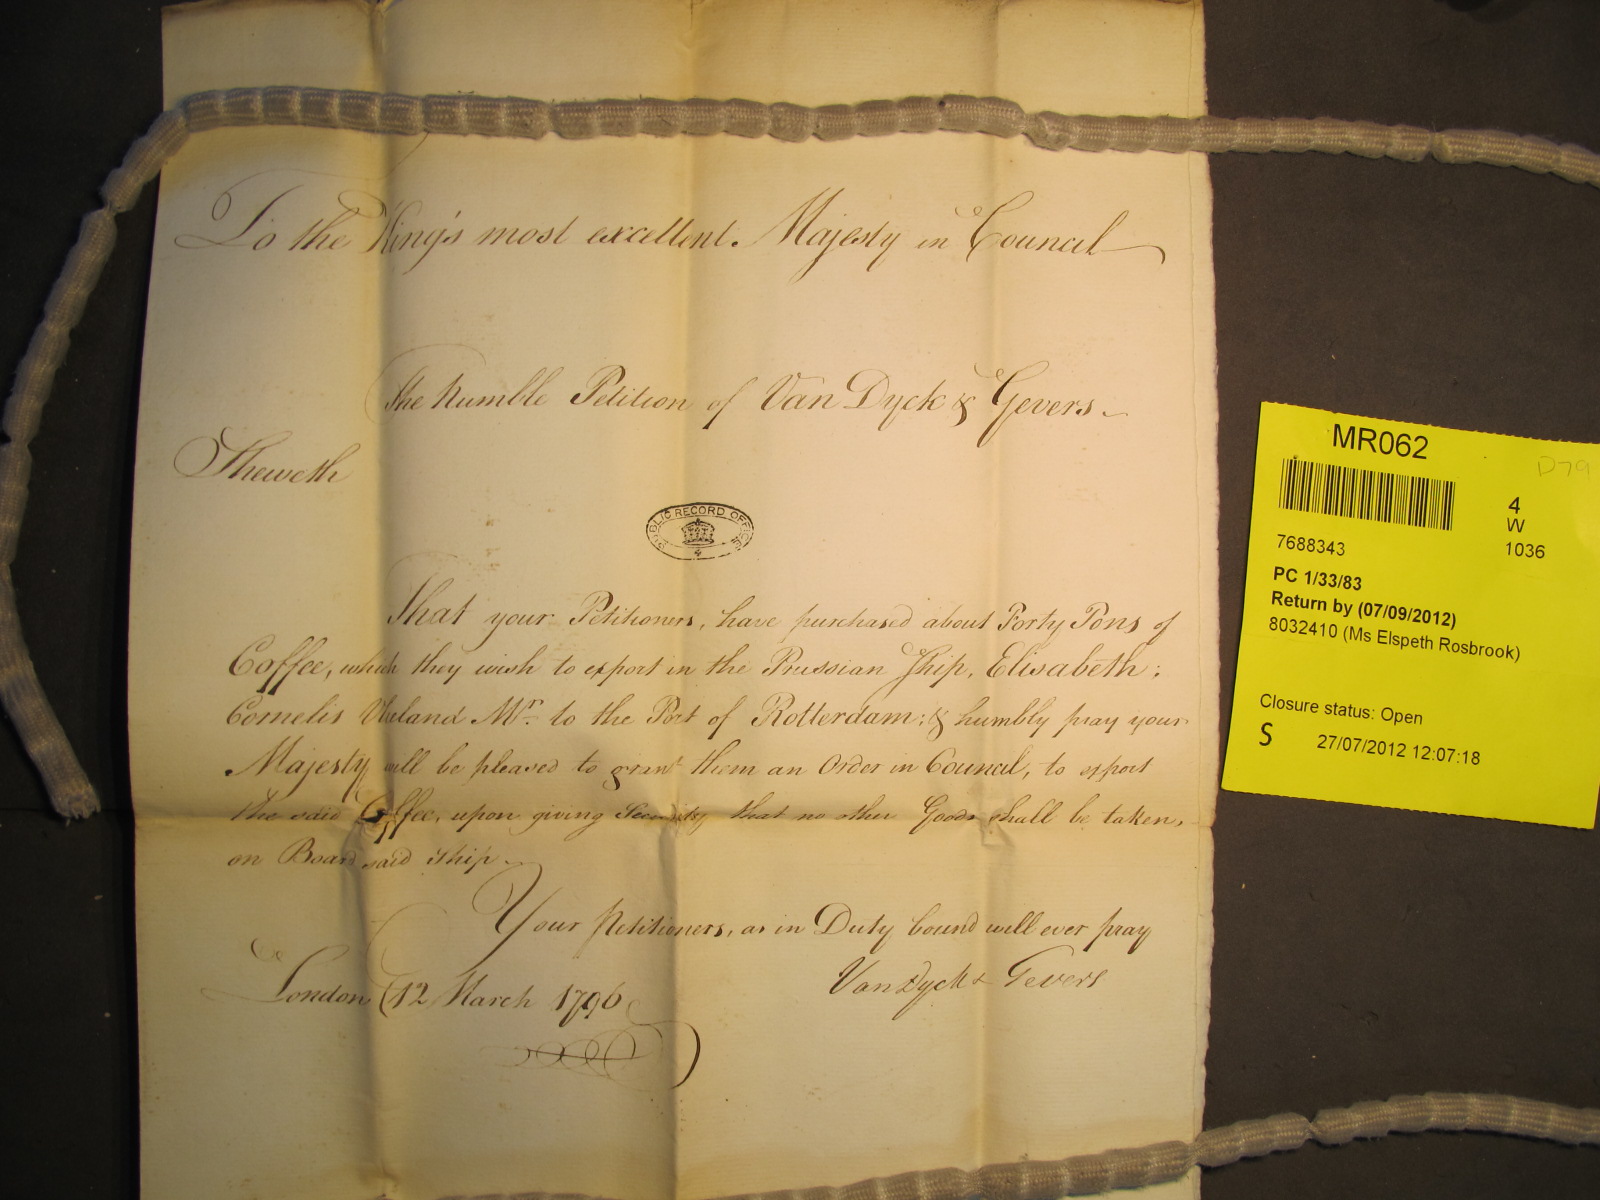 To the King's most excellent Majesty in Council
The humble Petition of Van Dyck & Gevers
Sheweth
PUBLIC RECORD OFFICE
4
That your Petitioners, have purchased about Forty Tons of
Coffee, which they wish to export in the Prussian Ship, Elisabeth;
Cornelis Mr. to the Port of Rotterdam; & humbly pray your
Majesty will be pleased to grant them an Order in Council, to export
the said Coffee, upon giving Security that no other Goods shall be taken,
on Board said Ship
Your Petitioners, as in Duty bound will ever pray
Van Dyck & Gevers
London 12 March 1796
MR062
D79
4
W
1036
7688343
PC 1/33/83
Return by (07/09/2012)
8032410 (Ms Elspeth Rosbrook)
Closure status: Open
S 27/07/2012 12:07:18